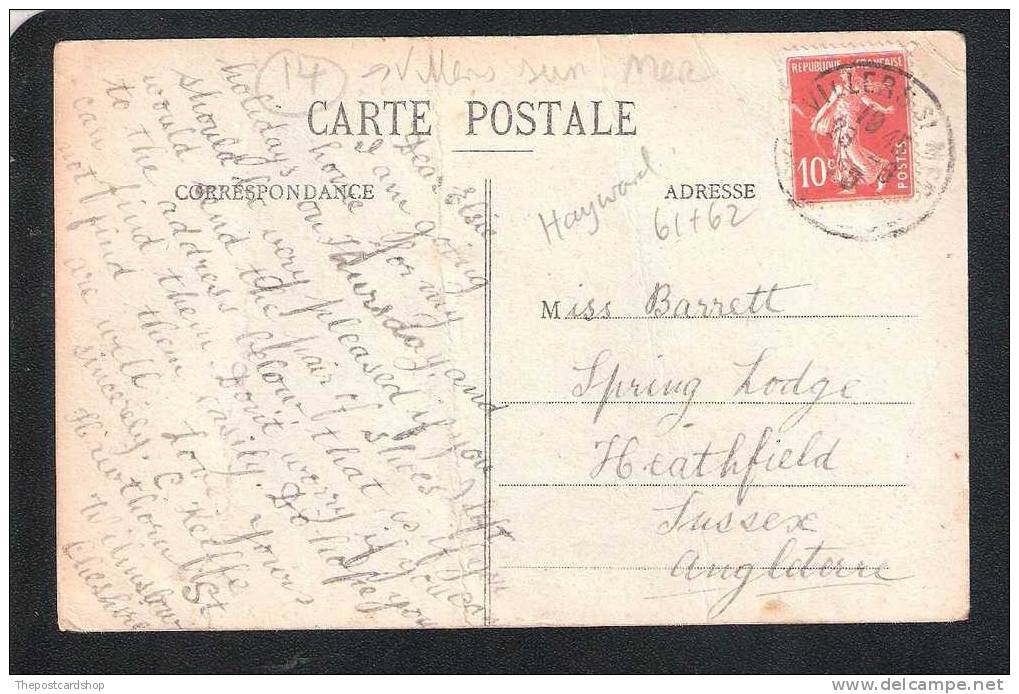 14 Villers sur Mer
CARTE POSTALE
CORRESPONDANCE
ADRESSE
REPUBLIQUE FRANÇAISE
10c POSTES
VILLERS S. MER
Hayward
61+62
Miss Barrett
Spring Lodge
Heathfield
Sussex
Angleterre
Dear Elsie
I am going
home for my
holiday's on Thursday and
should be very pleased if you
would send the pair of shoes I left
to the address below, that is if you
can find them easily. Don't worry if you
not find them. Do hope you
are well. Love Yours
sincerely. C. Keeffe
Hawthorn St
Wilmslow
Cheshire
Thepostcardshop
delcampe.net